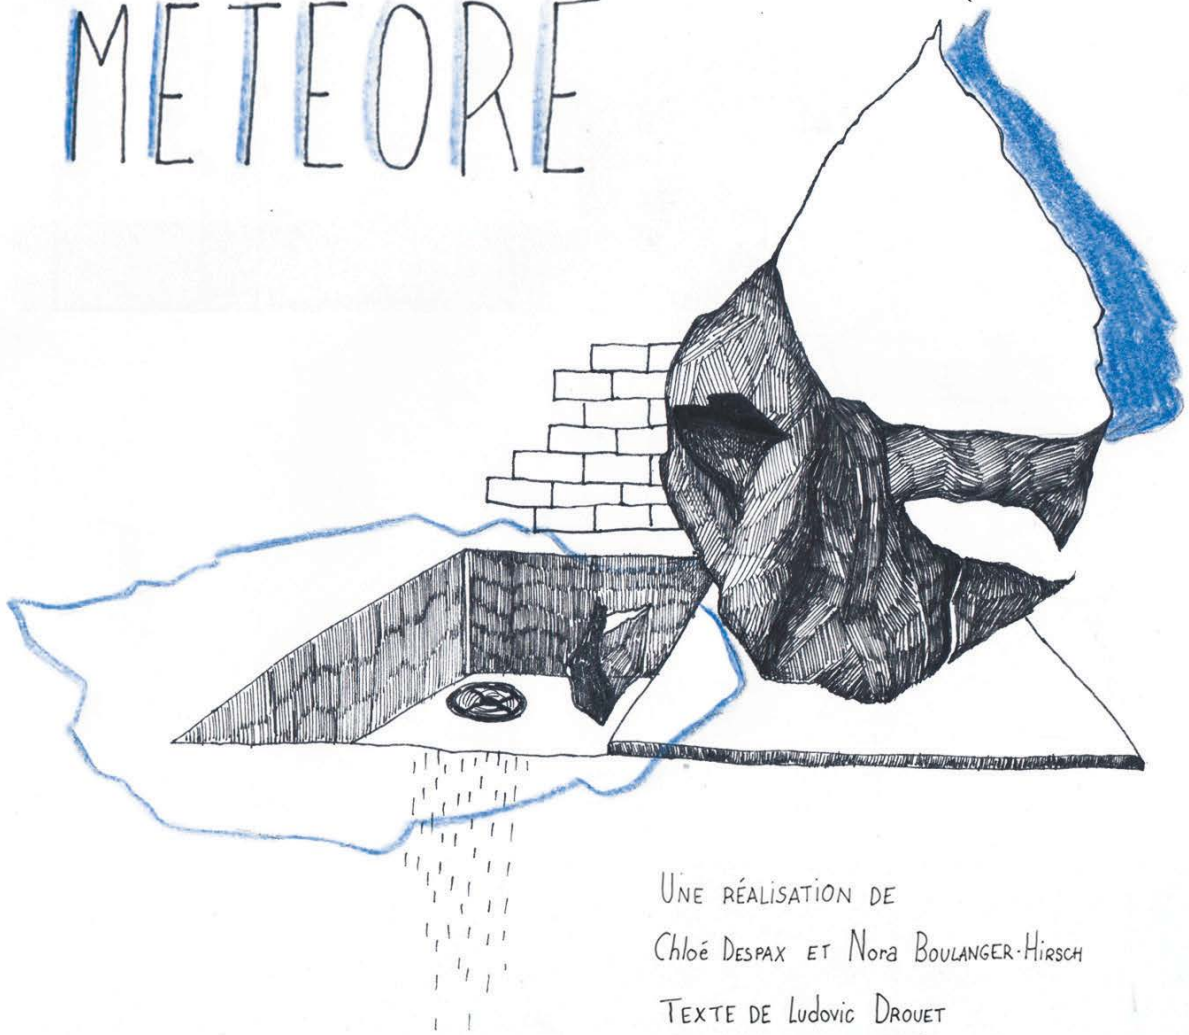 METEORE
UNE RÉALISATION DE
Chloé DESPAX ET Nora BOULANGER-HIRSCH
TEXTE DE Ludovic DROUET